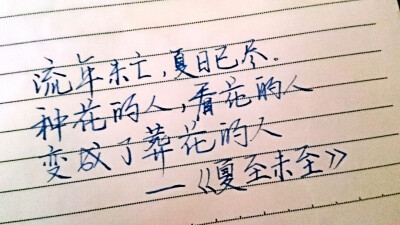 流年未亡，夏日已尽.
种花的人，看花的人
变成了葬花的人
—《夏至未至》